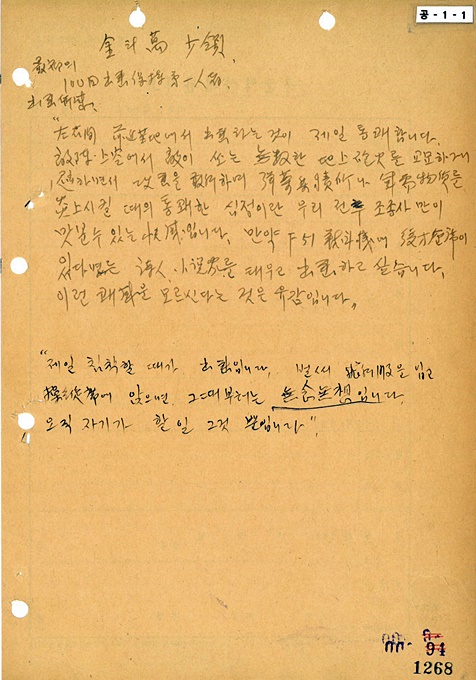 공-1-1
金斗萬 少領
100回 出擊 保持 第一人者.
出擊
에서 出擊하는 것이 제일 통쾌합니다.
上空에서 敵이 쏘는 無數한 地上砲火를 교묘하게
하면서 攻擊을 敢行하며 軍需物資를
炎上시킬 때의 통쾌한 심정이란 우리 전투 조종사만이
맛볼 수 있는 快感입니다. 만약 F51 戰鬪機에 後方座席이
있다면은 詩人, 小說家를 태우고 出擊하고 싶습니다.
이런 쾌감을 모르신다는 것은 유감입니다."
"제일 침착할 때가 出擊입니다. 벌써 飛行服을 입고
操縱席에 앉으면 그때부터는 無念無想입니다.
오직 자기가 할 일 그것 뿐입니다".
94
1268